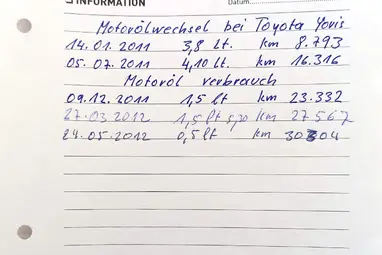 INFORMATION Datum
Motorölwechsel bei Toyota Yoris
14.01.2011 3,8 Lt. km 8.793
05.07.2011 4,10 Lt. km 16.316
Motoröl verbrauch
09.12.2011 1,5 lt km 23.332
27.03.2012 1,5 lt km 27567
24.05.2012 0,5 lt km 30304